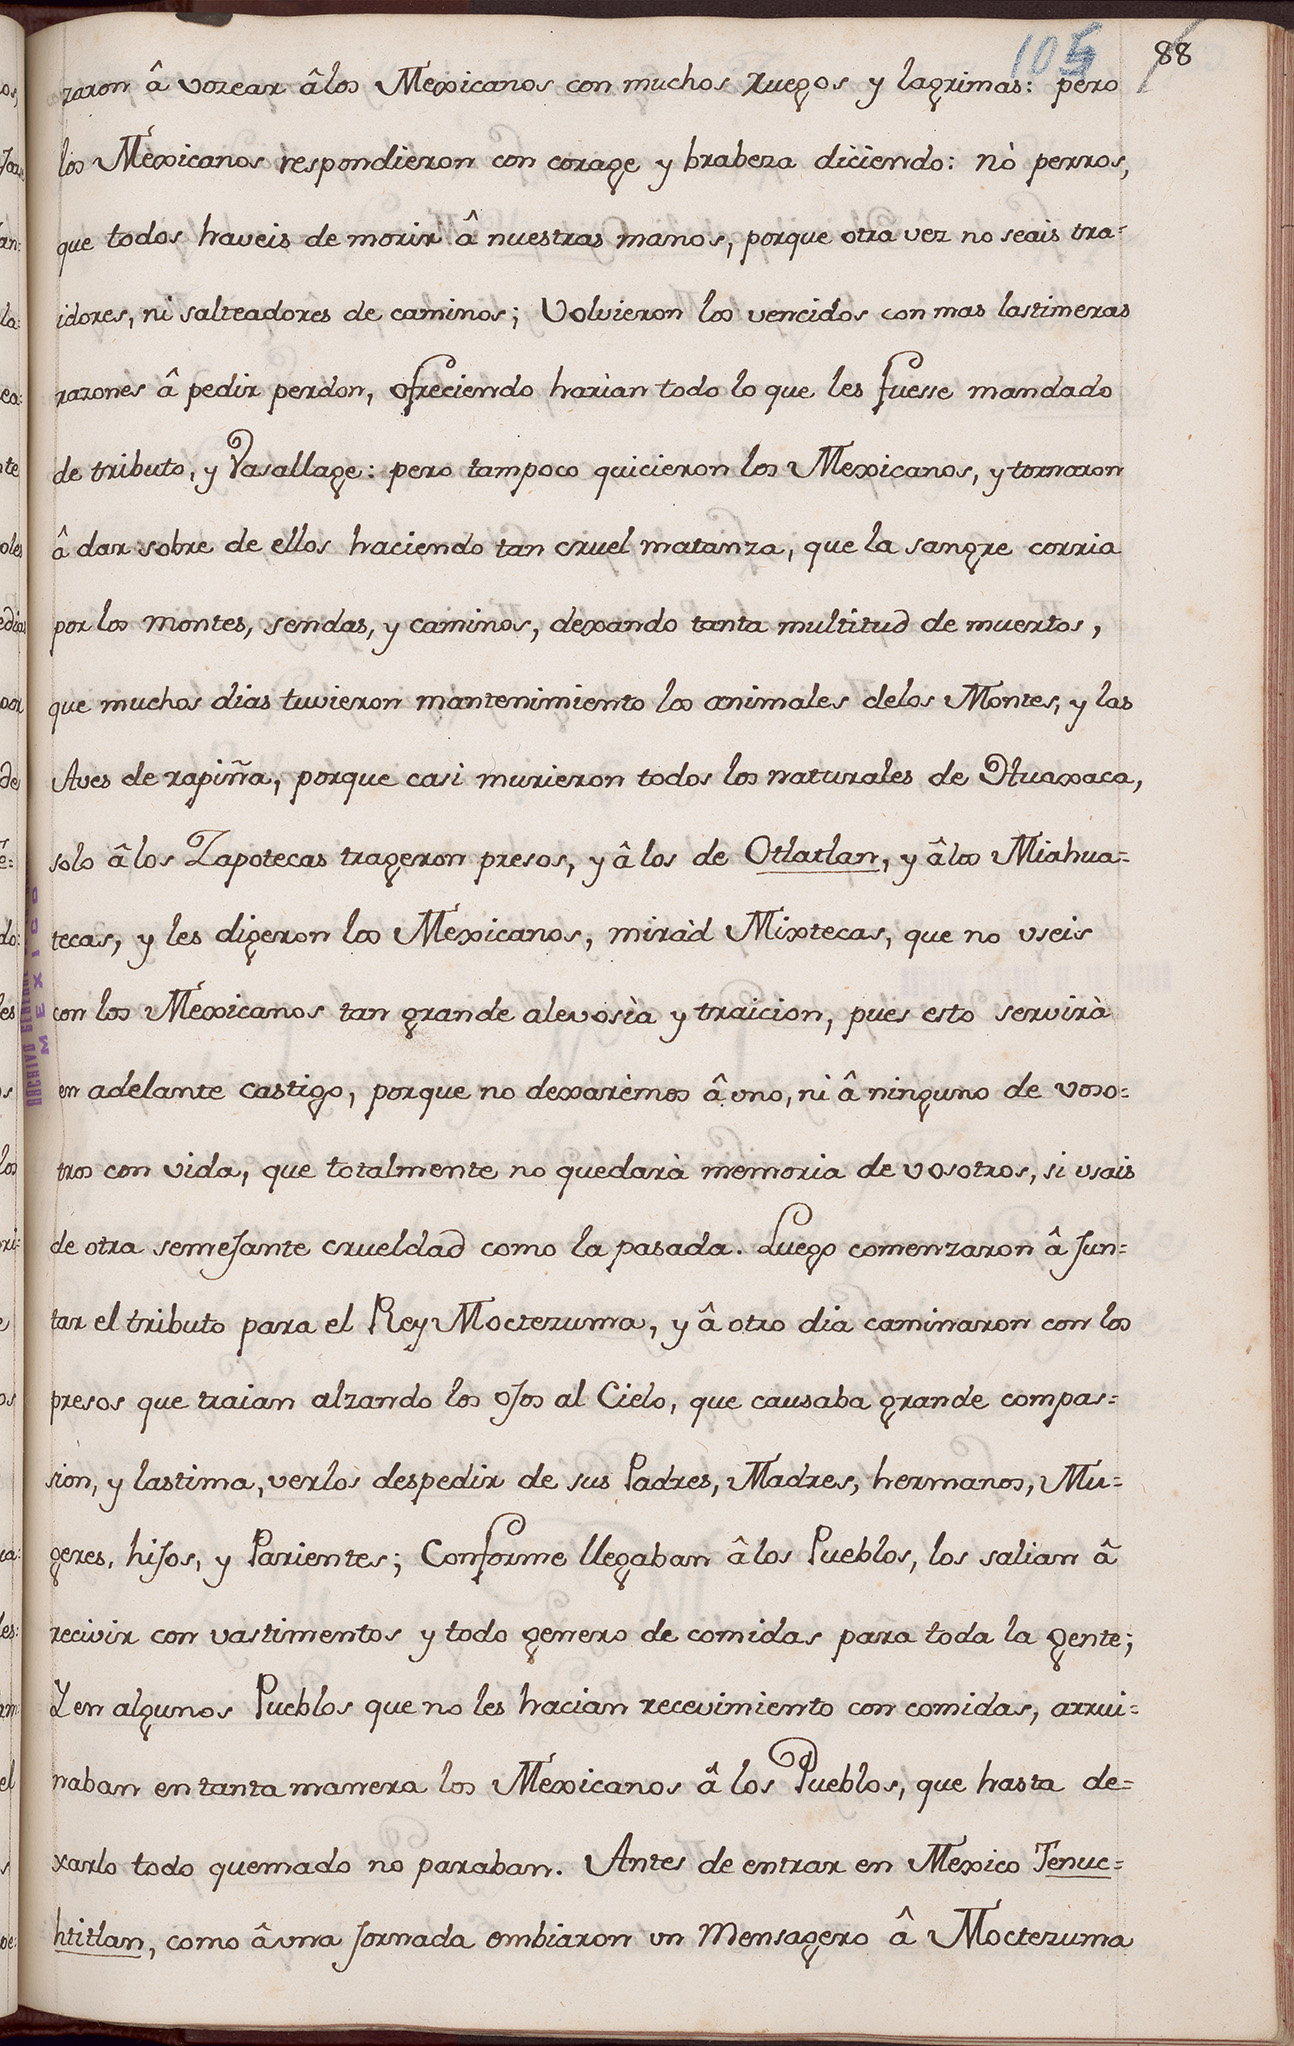 105 88
zaron â vozear â los Mexicanos con muchos ruegos y lagrimas: pero
los Mexicanos respondieron con corage y brabeza diciendo: nò perros,
que todos haveis de morir â nuestras manos, porque otra vez no seais tra=
idores, ni salteadores de caminos; Volvieron los vencidos con mas lastimeras
razones â pedir perdon, ofreciendo harian todo lo que les fuesse mandado
de tributo, y Vasallage: pero tampoco quicieron los Mexicanos, y tornaron
â dar sobre de ellos haciendo tan cruel matanza, que la sangre corria
por los montes, sendas, y caminos, dexando tanta multitud de muertos,
que muchos dias tuvieron mantenimiento los animales delos Montes, y las
Aves de rapiña, porque casi murieron todos los naturales de Huaxaca,
solo â los Zapotecas trageron presos, y â los de Otlatlan, y â los Miahua=
tecas, y les digeron los Mexicanos, miràd Mixtecas, que no vseis
con los Mexicanos tan grande alevosìa y traicion, pues esto servirà
en adelante castigo, porque no dexarèmos â uno, ni â ninguno de voso=
tros con vida, que totalmente no quedarà memoria de vosotros, si vsais
de otra semejante crueldad como la pasada. Luego comenzaron â jun=
tar el tributo para el Rey Moctezuma, y â otro dia caminaron con los
presos que traian alzando los ojos al Cielo, que causaba grande compas=
sion, y lastima, verlos despedir de sus Padres, Madres, hermanos, Mu=
geres, hijos, y Parientes; Conforme llegaban â los Pueblos, los salian â
recivir con vastimentos y todo genero de comidas para toda la gente;
Y en algunos Pueblos que no les hacian recevimiento con comidas, arrui=
naban en tanta manera los Mexicanos â los Pueblos, que hasta de=
xarlo todo quemado no paraban. Antes de entrar en Mexico Tenuc=
htitlan, como â una jornada embiaron un Mensagero â Moctezuma